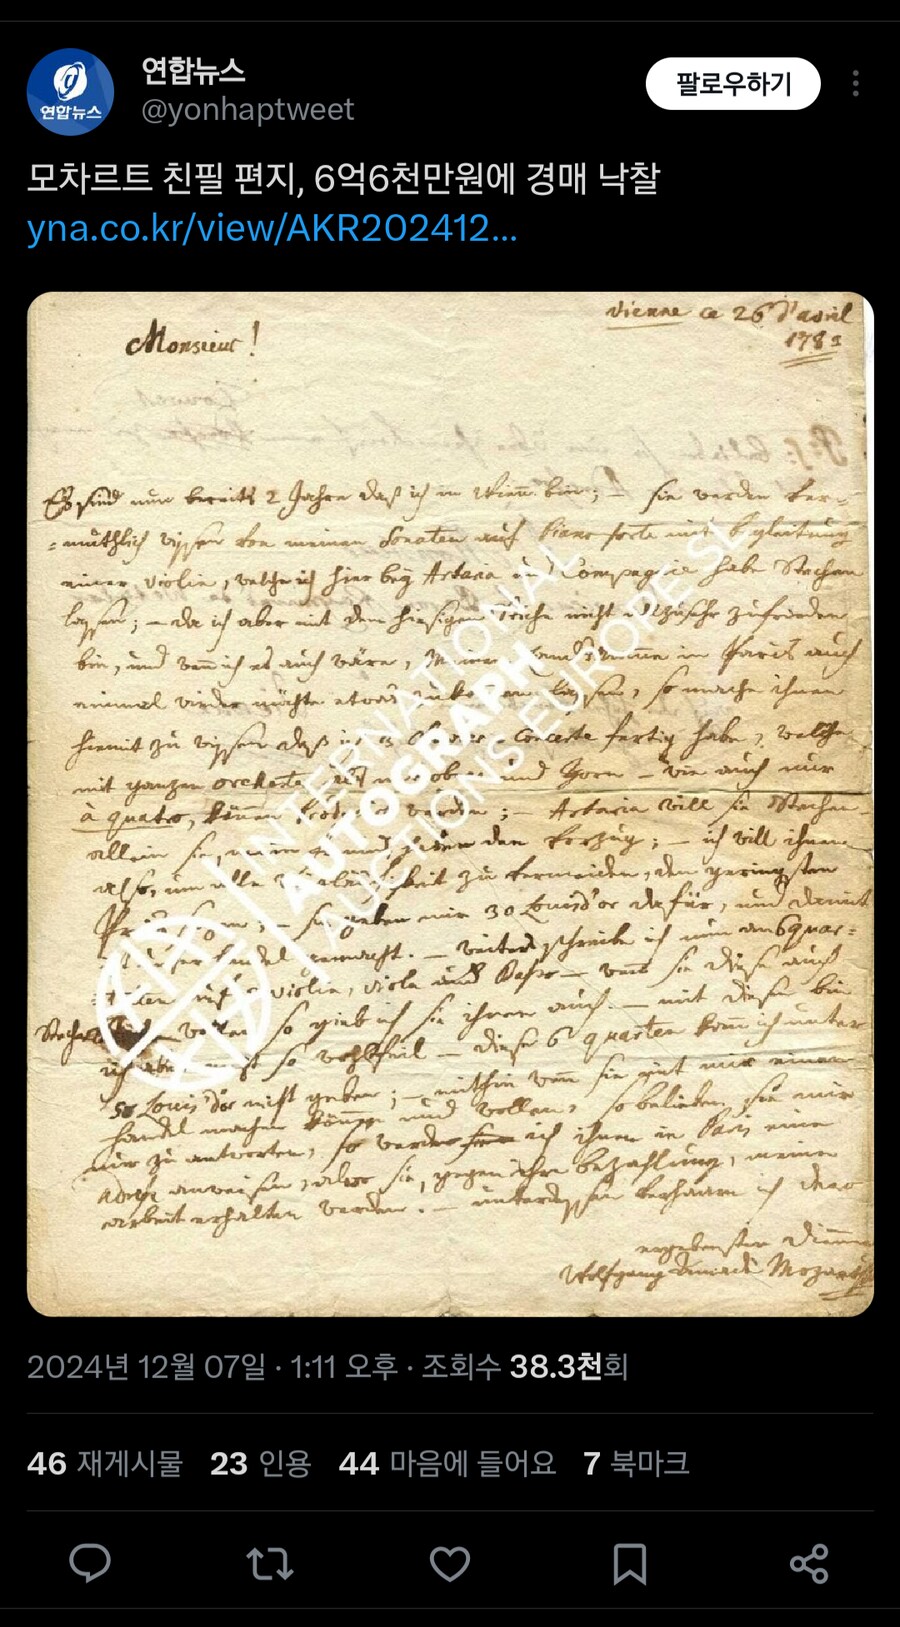 연합뉴스
연합뉴스
@yonhaptweet
팔로우하기
모차르트 친필 편지, 6억6천만원에 경매 낙찰
yna.co.kr/view/AKR202412...
vienne ce 26 d'avril
1783
Monsieur!
Es sind nun bereits 2 Jahre daß ich in Wienn bin; – sie werden ver=
=muthlich wissen von meinen Sonaten auf Piano forte mit begleitung
einer violin, welche ich hier bey Artaria und Compagnie habe Stechen
lassen; – da ich aber mit dem hiesigen Stiche nicht allzusehr zufrieden
bin, und wenn ich es auch wäre, Meinen Landsmann in Paris auch
einmal wieder möchte etwas zukommen lassen, so mache ihnen
hiemit zu wissen daß ich 3 Concerte fertig habe, welche
mit ganzen orchestre, und Horn – wie auch nur
à quatro, können werden; – Artaria will sie Stechen
allein sie, mein freund, haben den vorzug; – ich will ihnen
also, um alle zu vermeiden, den geringsten
sagen; – sie geben mir 30 Louis d'or dafür, und damit
ist der handel gemacht. – weiters schreibe ich nun an 6 quar=
=tetten auf 2 violin, viola und Basso – wenn sie diese auch
Stechen wollen so gieb ich sie ihnen auch. – mit diesen bin
ich aber nicht so wohlfeil – diese 6 quartetten kann ich unter
50 Louis d'or nicht geben; – mithin wenn sie mit mir einen
handel machen können und wollen, so belieben sie mir
nur zu antworten, so werde ich ihnen in Paris eine
adresse anweisen, allwo sie, gegen ihre bezahlung, meine
arbeit erhalten werden. – unterdessen verharre ich dero
ergebenster Diener
Wolfgang Amadè Mozart
INTERNATIONAL
AUTOGRAPH
AUCTIONS EUROPE SL
2024년 12월 07일 · 1:11 오후 · 조회수 38.3천회
46 재게시물 23 인용 44 마음에 들어요 7 북마크